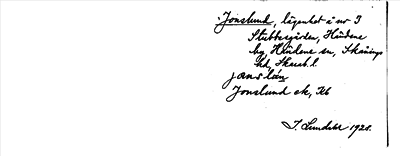 Jonslund, lägenhet å nr 3
Stubbegården, Hindens
by, Hindens sn, Skånings
hd, Skarab. l.
Jonslund ek, Kb
J. Lundahl 1925.